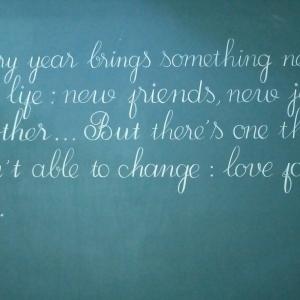 ry year brings something ne
life : new friends, new j
ther... But there's one th
n't able to change : love fo
.